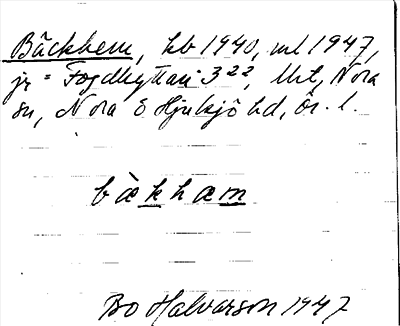 Bäckhem, kb 1940, ml 1947,
jr = Fogdhyttan 3²², Nora
sn, Nora o Hjulsjö hd, ör. l.
bàkhæm
Bo Halvarson 1947